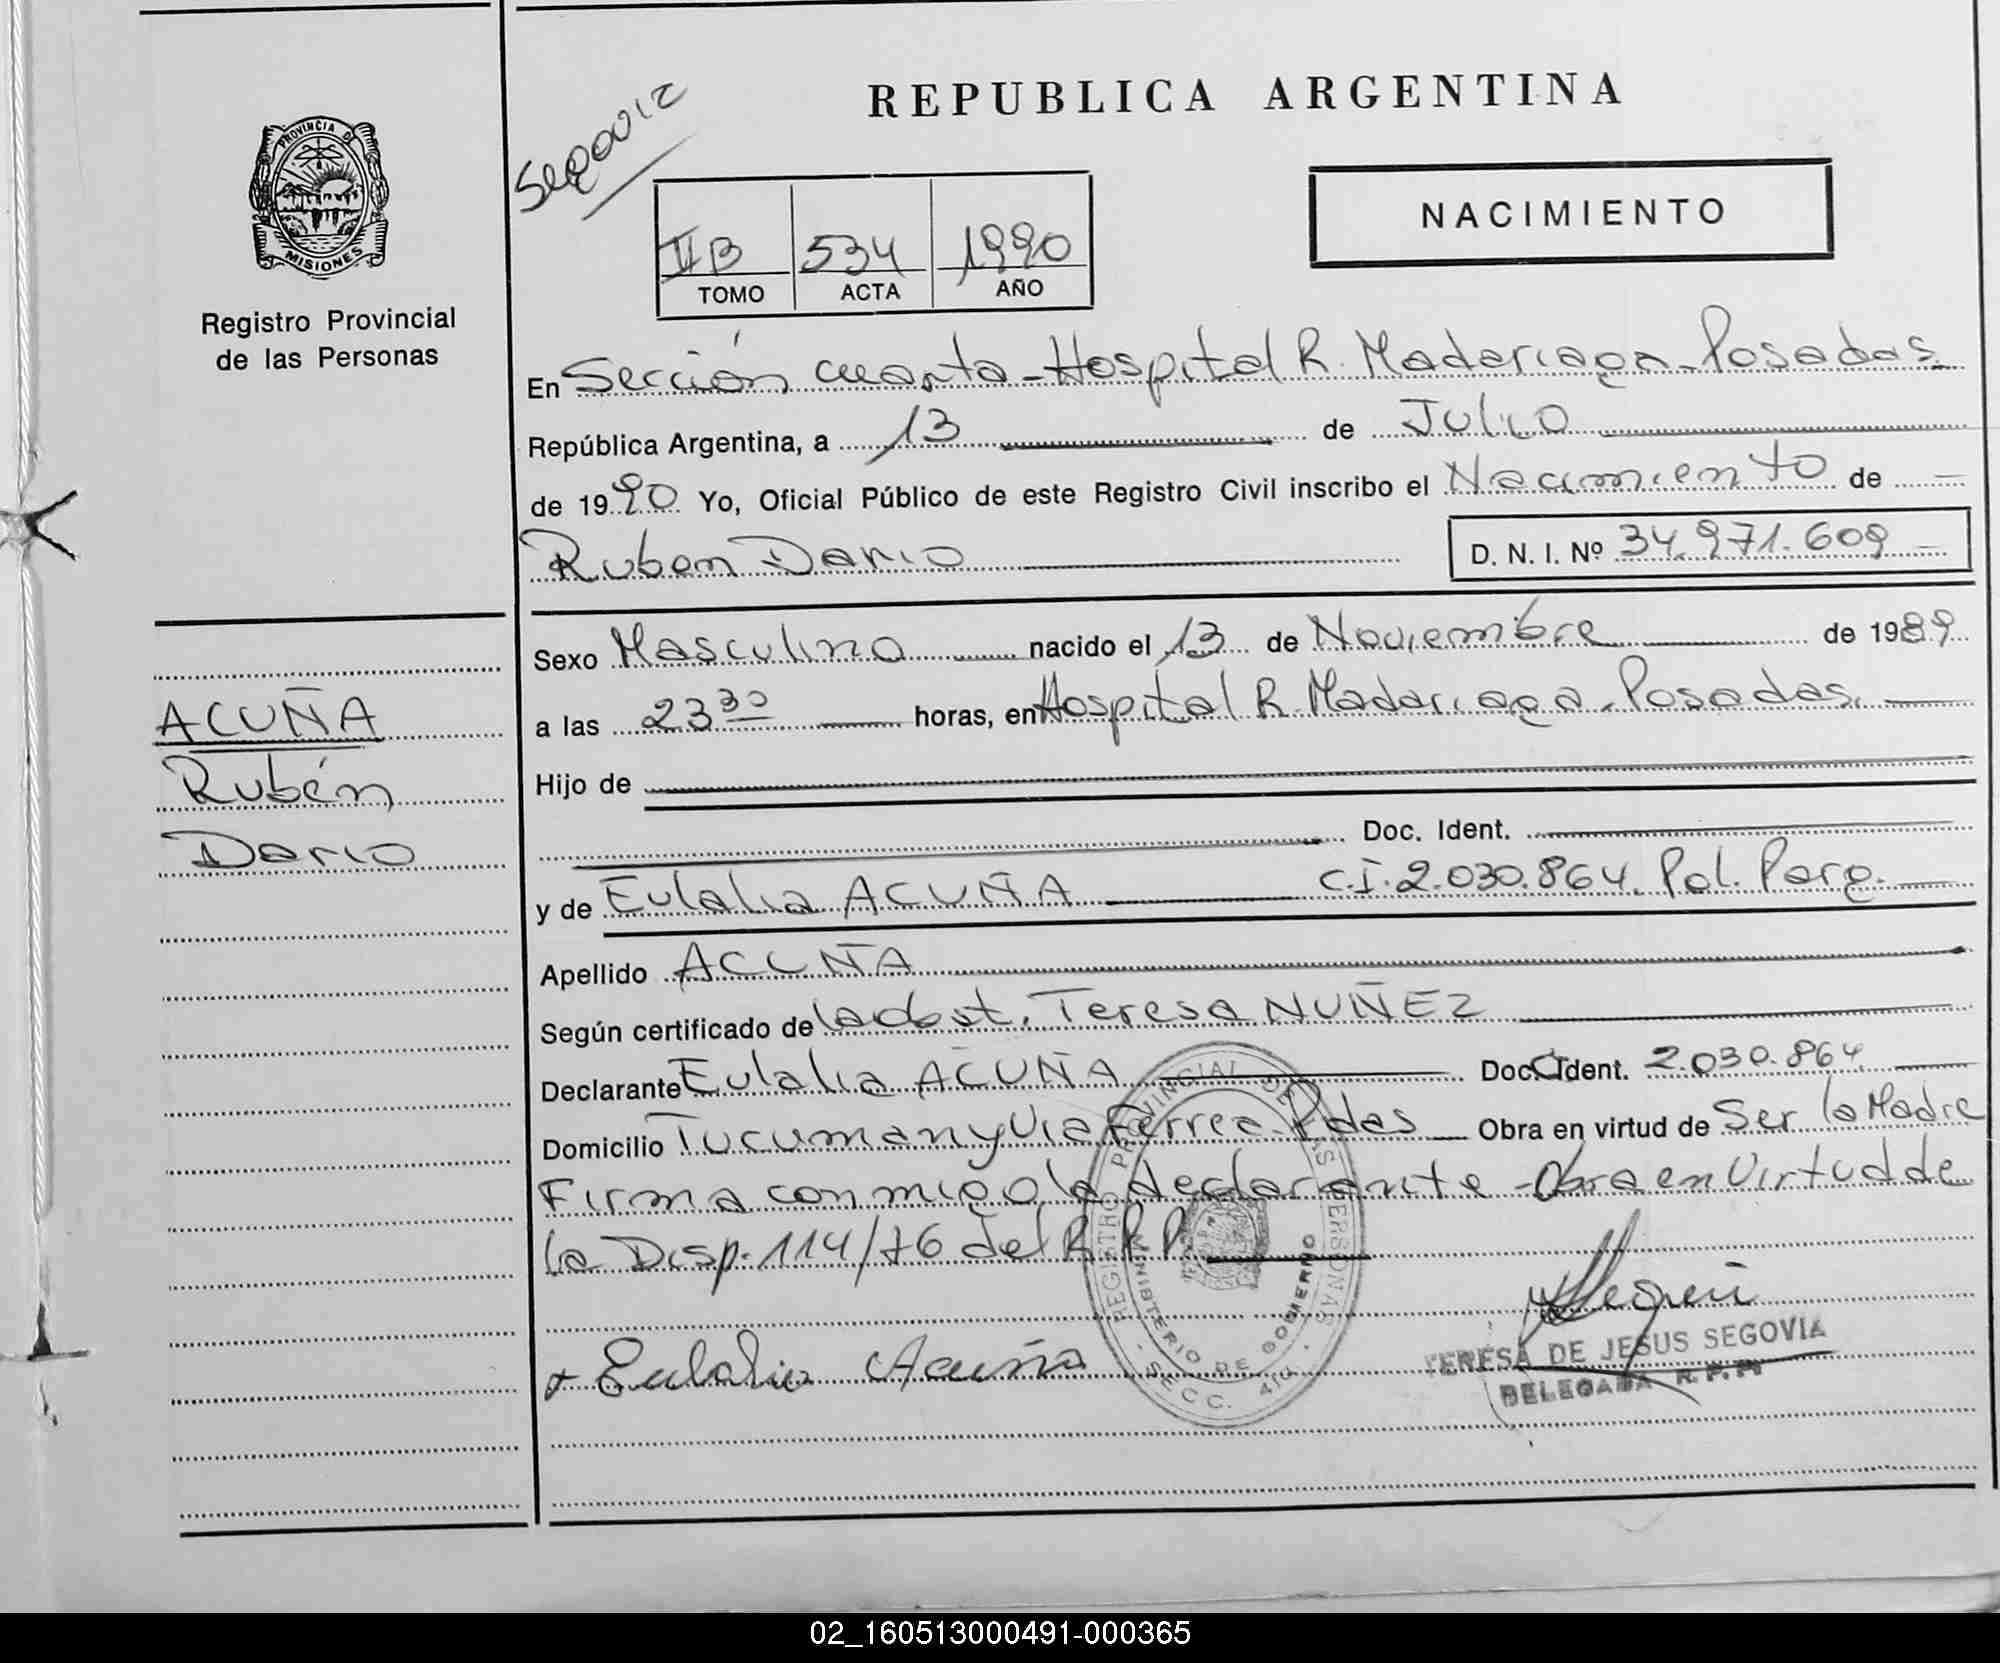 REPUBLICA ARGENTINA
PROVINCIA DE
MISIONES
Registro Provincial
de las Personas
IIB 534 1990
TOMO ACTA AÑO
NACIMIENTO
En Sección cuarta - Hospital R. Madariaga - Posadas.
República Argentina, a 13 de Julio
de 1990 Yo, Oficial Público de este Registro Civil inscribo el Nacimiento de
Ruben Dario
D. N. I. Nº 34.971.609
ACUÑA
Rubén
Dario
Sexo Masculino nacido el 13 de Noviembre de 1989
a las 23 30 horas, en Hospital R. Madariaga. Posadas.
Hijo de
Doc. Ident.
y de Eulalia ACUÑA C.I. 2.030.864. Pol. Parg.
Apellido ACUÑA
Según certificado de la obst. Teresa NUÑEZ
Declarante Eulalia ACUÑA Doc. CI Ident. 2.030.864
Domicilio Tucuman y Via Ferrea - Pdas Obra en virtud de Ser la Madre
Firma conmigo la declarante - Obra en Virtud de
la Disp. 114/76 del R. P. P.
REGISTRO PROVINCIAL DE LAS PERSONAS
MINISTERIO DE GOBIERNO
SECC. 4ta.
Eulalia Acuña
TERESA DE JESUS SEGOVIA
DELEGADA R. P. P.
02_160513000491-000365